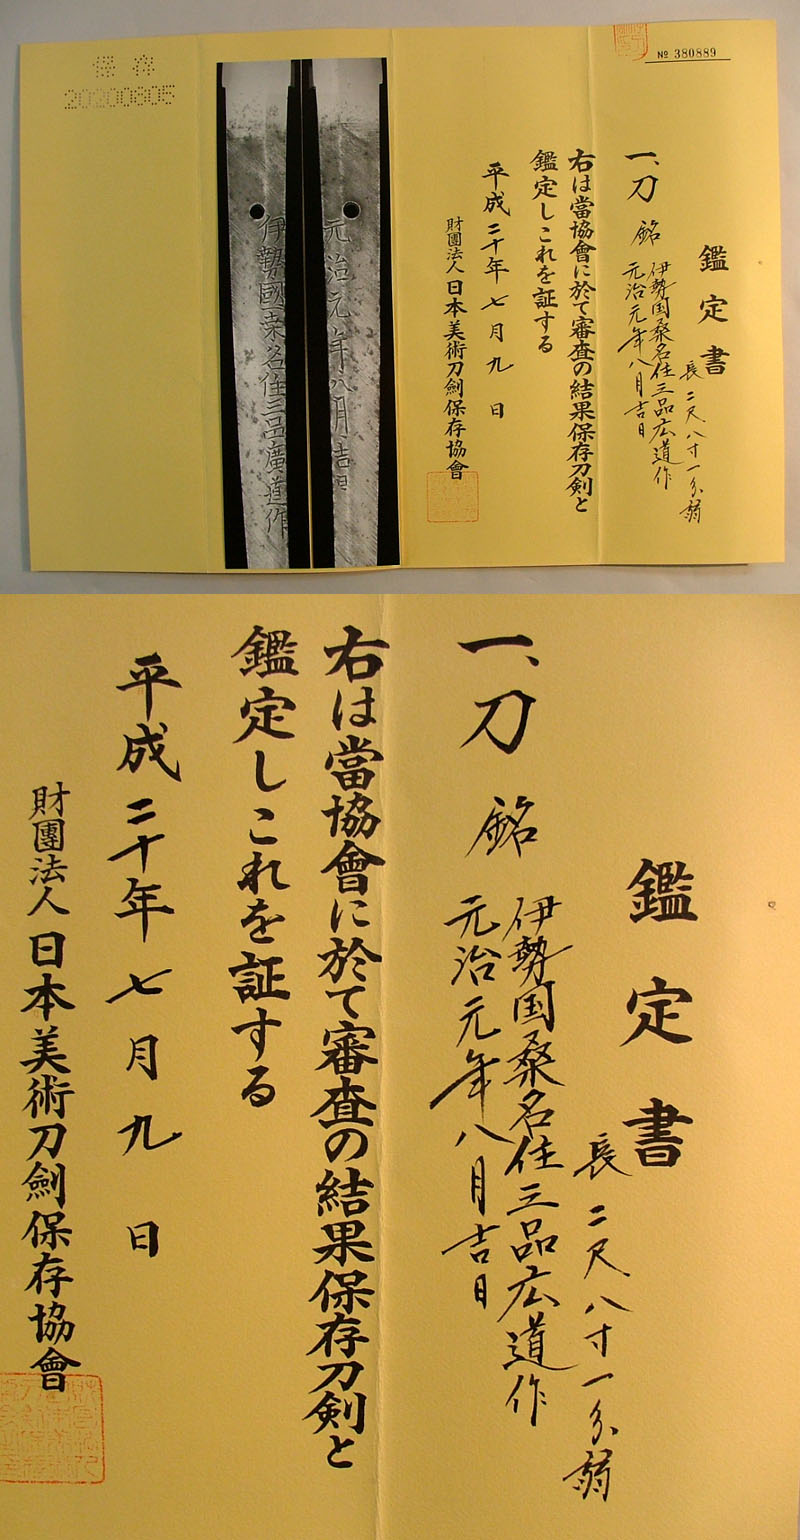 № 380889
鑑定書
一、刀 銘 伊勢国桑名住三品広道作
元治元年八月吉日
長二尺八寸一分弱
右は當協會に於て審査の結果保存刀剣と
鑑定しこれを証する
平成二十年七月九日
財團法人日本美術刀劍保存協會
元治元年八月吉日
伊勢國桒名住三品廣道作
保存
20200805
鑑定書
長二尺八寸一分弱
一、刀 銘 伊勢国桑名住三品広道作
元治元年八月吉日
右は當協會に於て審査の結果保存刀剣と
鑑定しこれを証する
平成二十年七月九日
財團法人日本美術刀劍保存協會